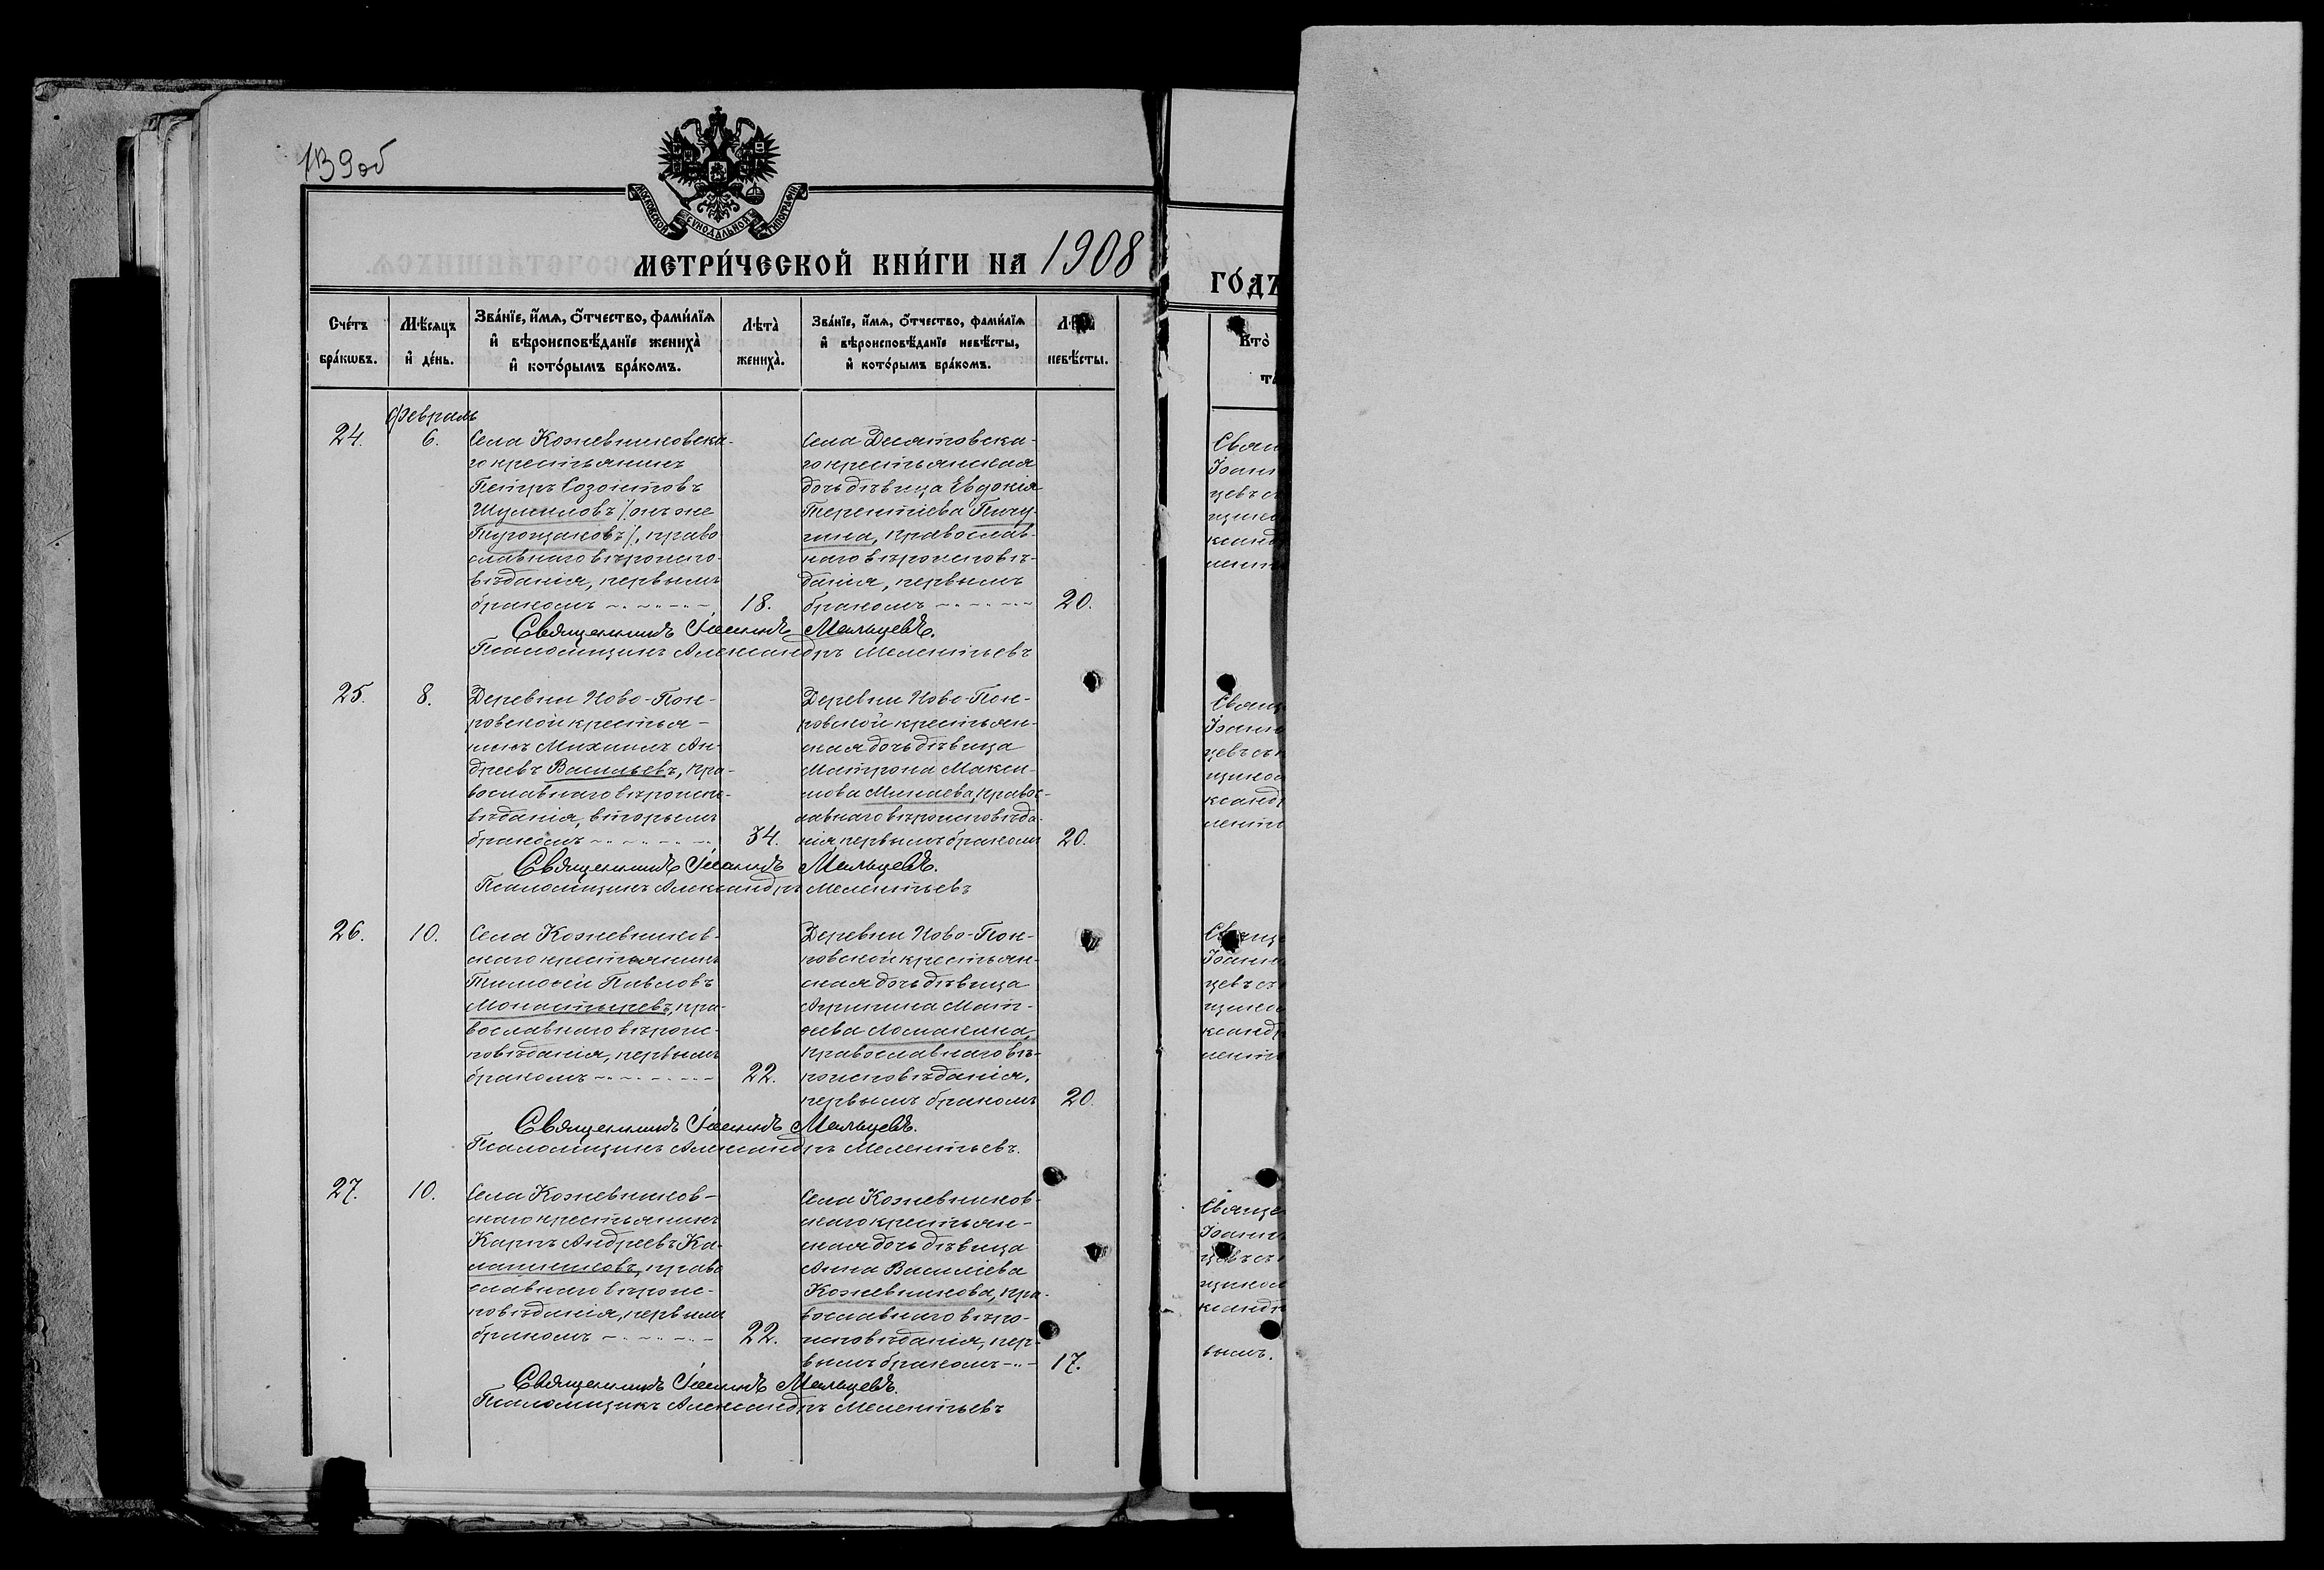 139 об
МОСКОВСКОЙ СѴНОДАЛЬНОЙ ТИПОГРАФІИ
МЕТРИ́ЧЕСКОЙ КНИ́ГИ НА 1908
ГО́ДЪ
Сче́тъ бра́кѡвъ.
Мѣ́сяцъ и҆ де́нь.
Зва́нїе, и҆́мѧ, ѻ҆́тчество, фами́лїѧ и҆ вѣроисповѣ́данїе жениха̀ и҆ кото́рымъ бра́комъ.
Лѣта̀ жениха̀.
Зва́нїе, и҆́мѧ, ѻ҆́тчество, фами́лїѧ и҆ вѣроисповѣ́данїе невѣ́сты, и҆ кото́рымъ бра́комъ.
невѣ́сты.
Кто̀
Февраль
24.
6.
Села Кожевниковска-
го крестьянинъ
Петръ Созонтовъ
Шумиловъ /: онъ же
православнаго вѣроиспо-
вѣданія, первымъ
бракомъ
18.
Села Десятовска-
го крестьянская
дочь дѣвица Евдокія
Терентіева Пичу-
гина, православ-
наго вѣроисповѣ-
данія, первымъ
бракомъ
20.
Священникъ Іоаннъ Мальцевъ.
Псаломщикъ Александръ Мелентьевъ
25.
8.
Деревни Ново-Пок-
ровской крестья-
нинъ Михаилъ Ан-
дреевъ Васильевъ, пра-
вославнаго вѣроиспо-
вѣданія, вторымъ
бракомъ
34.
Деревни Ново-Пок-
ровской крестьян-
ская дочь дѣвица
Матрона Макси-
мова Минаева, правос-
лавнаго вѣроисповѣда-
нія, первымъ бракомъ
20.
Священникъ Іоаннъ Мальцевъ.
Псаломщикъ Александръ Мелентьевъ
26.
10.
Села Кожевников-
скаго крестьянинъ
Тимоѳей Павловъ
Монастыревъ, пра-
вославнаго вѣроис-
повѣданія, первымъ
бракомъ
22.
Деревни Ново-Пок-
ровской крестьян-
ская дочь дѣвица
Агрипина Мат-
ѳеева Ломакина,
православнаго вѣ-
роисповѣданія,
первымъ бракомъ
20.
Священникъ Іоаннъ Мальцевъ.
Псаломщикъ Александръ Мелентьевъ.
27.
10.
Села Кожевников-
скаго крестьянинъ
Карпъ Андреевъ Ка-
лашниковъ, право
славнаго вѣроис-
повѣданія, первымъ
бракомъ
22.
Села Кожевников-
скаго крестьян-
ская дочь дѣвица
Анна Василіева
Кожевникова, пра-
вославнаго вѣро-
исповѣданія, пер-
вымъ бракомъ
17.
Священникъ Іоаннъ Мальцевъ.
Псаломщикъ Александръ Мелентьевъ